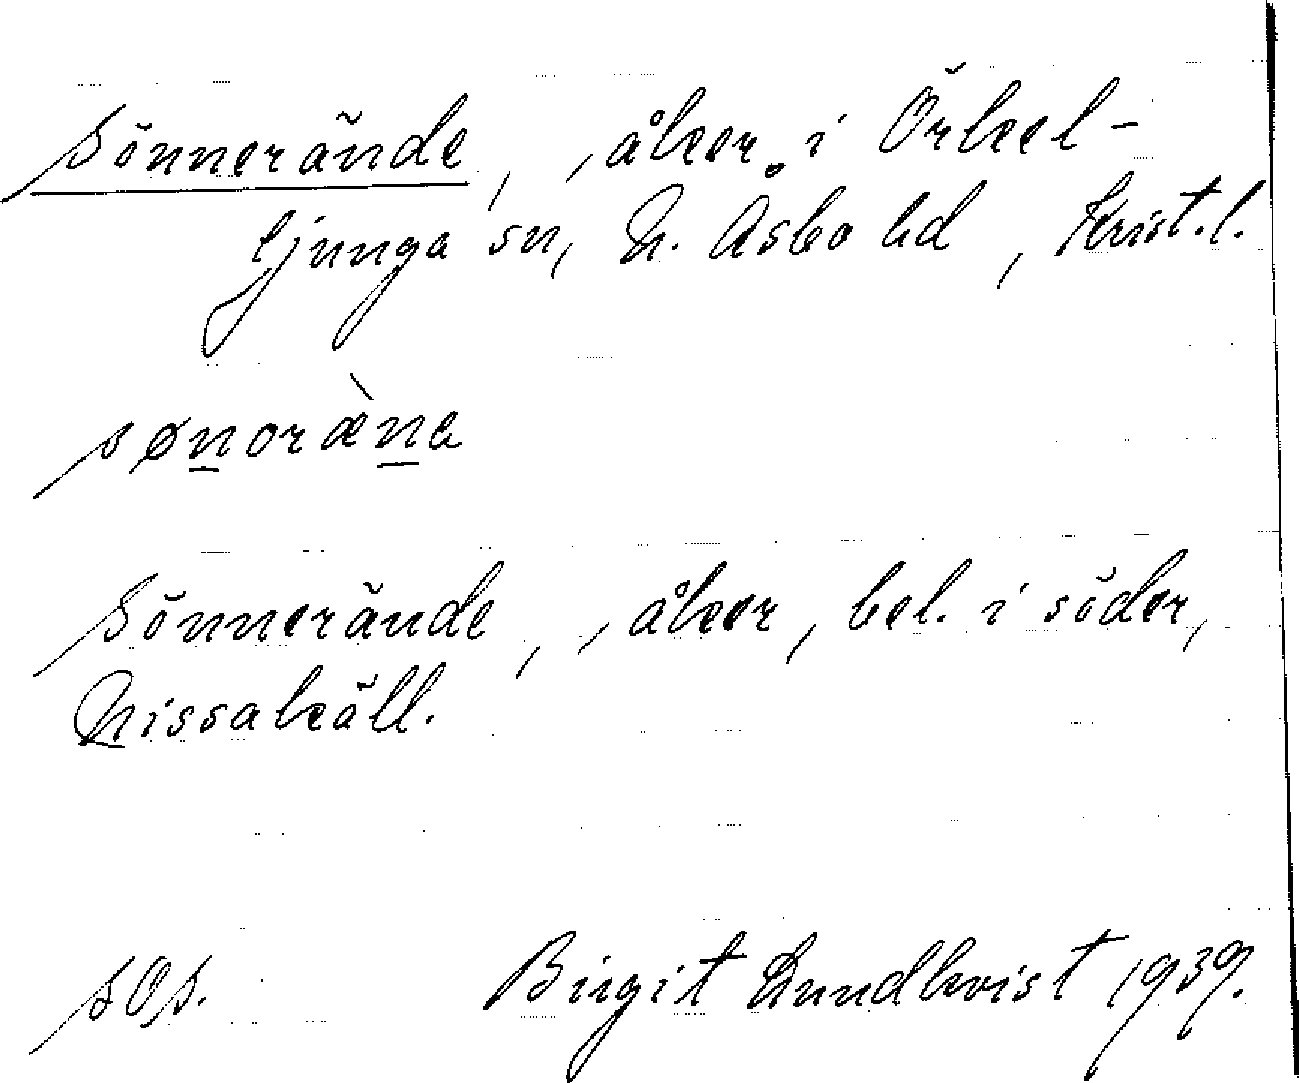 Sönnerände, , åker i Örkel-
ljunga sn, N. Åsbo hd, Krist.l.
sønoræ̀na
Sönnerände, , åker, bel. i söder,
Nissaköll.
sOs. Birgit Lundkvist 1939.